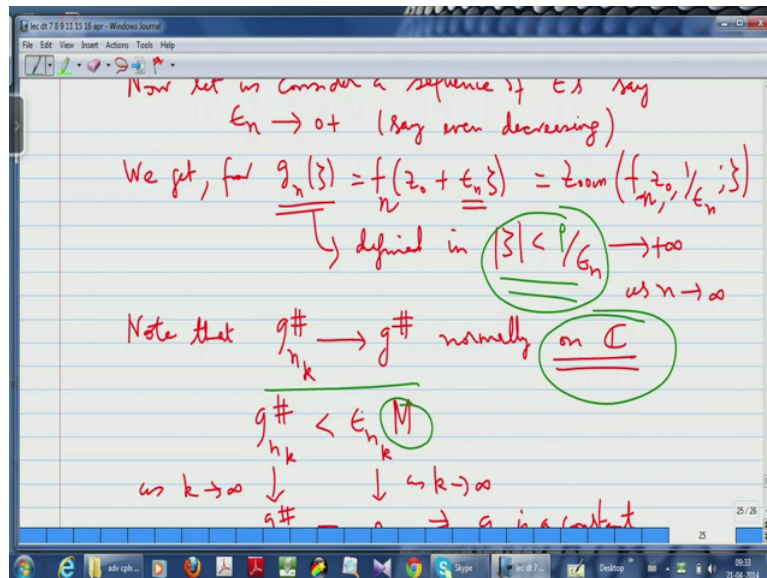 lec dt 7 8 9 11 15 16 apr - Windows Journal
File Edit View Insert Actions Tools Help
Now let us consider a sequence of ϵs say
ϵ_n → 0+ (say even decreasing)
We get, for g_n(ζ) = f_n(z_0 + ϵ_n ζ) = zoom(f_n, z_0, 1/ϵ_n; ζ)
↳ defined in |ζ| < ρ/ϵ_n → +∞
as n → ∞
Note that g^#_{n_k} → g^# normally on ℂ
g^#_{n_k} < ϵ_{n_k} M
as k → ∞ ↓ ↓ as k → ∞
g^# = 0 ⇒ g is a constant
25 / 26
25
adv cplx ...
Skype
lec dt 7...
Desktop
09:33
21-04-2014